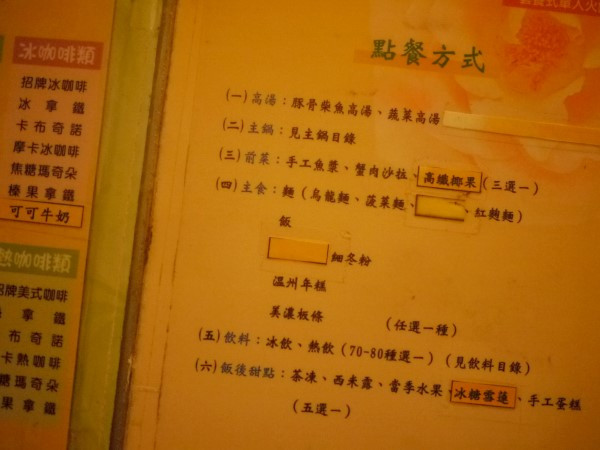 冰咖啡
招牌冰咖啡
冰拿鐵
卡布奇諾
摩卡冰咖啡
焦糖瑪奇朵
榛果拿鐵
可可牛奶
熱咖啡
招牌美式咖啡
拿鐵
布奇諾
卡熱咖啡
糖瑪奇朵
果拿鐵
套餐式單人火
點餐方式
(一)高湯：豚骨柴魚高湯、蔬菜高湯
(二)主鍋：見主鍋目錄
(三)前菜：手工魚漿、蟹肉沙拉、高纖椰果(三選一)
(四)主食：麵(烏龍麵、菠菜麵、、紅麴麵)
飯
細冬粉
溫州年糕
美濃板條 (任選一種)
(五)飲料：冰飲、熱飲(70-80種選一)(見飲料目錄)
(六)飯後甜點：茶凍、西米露、當季水果、冰糖雪蓮、手工蛋糕
(五選一)